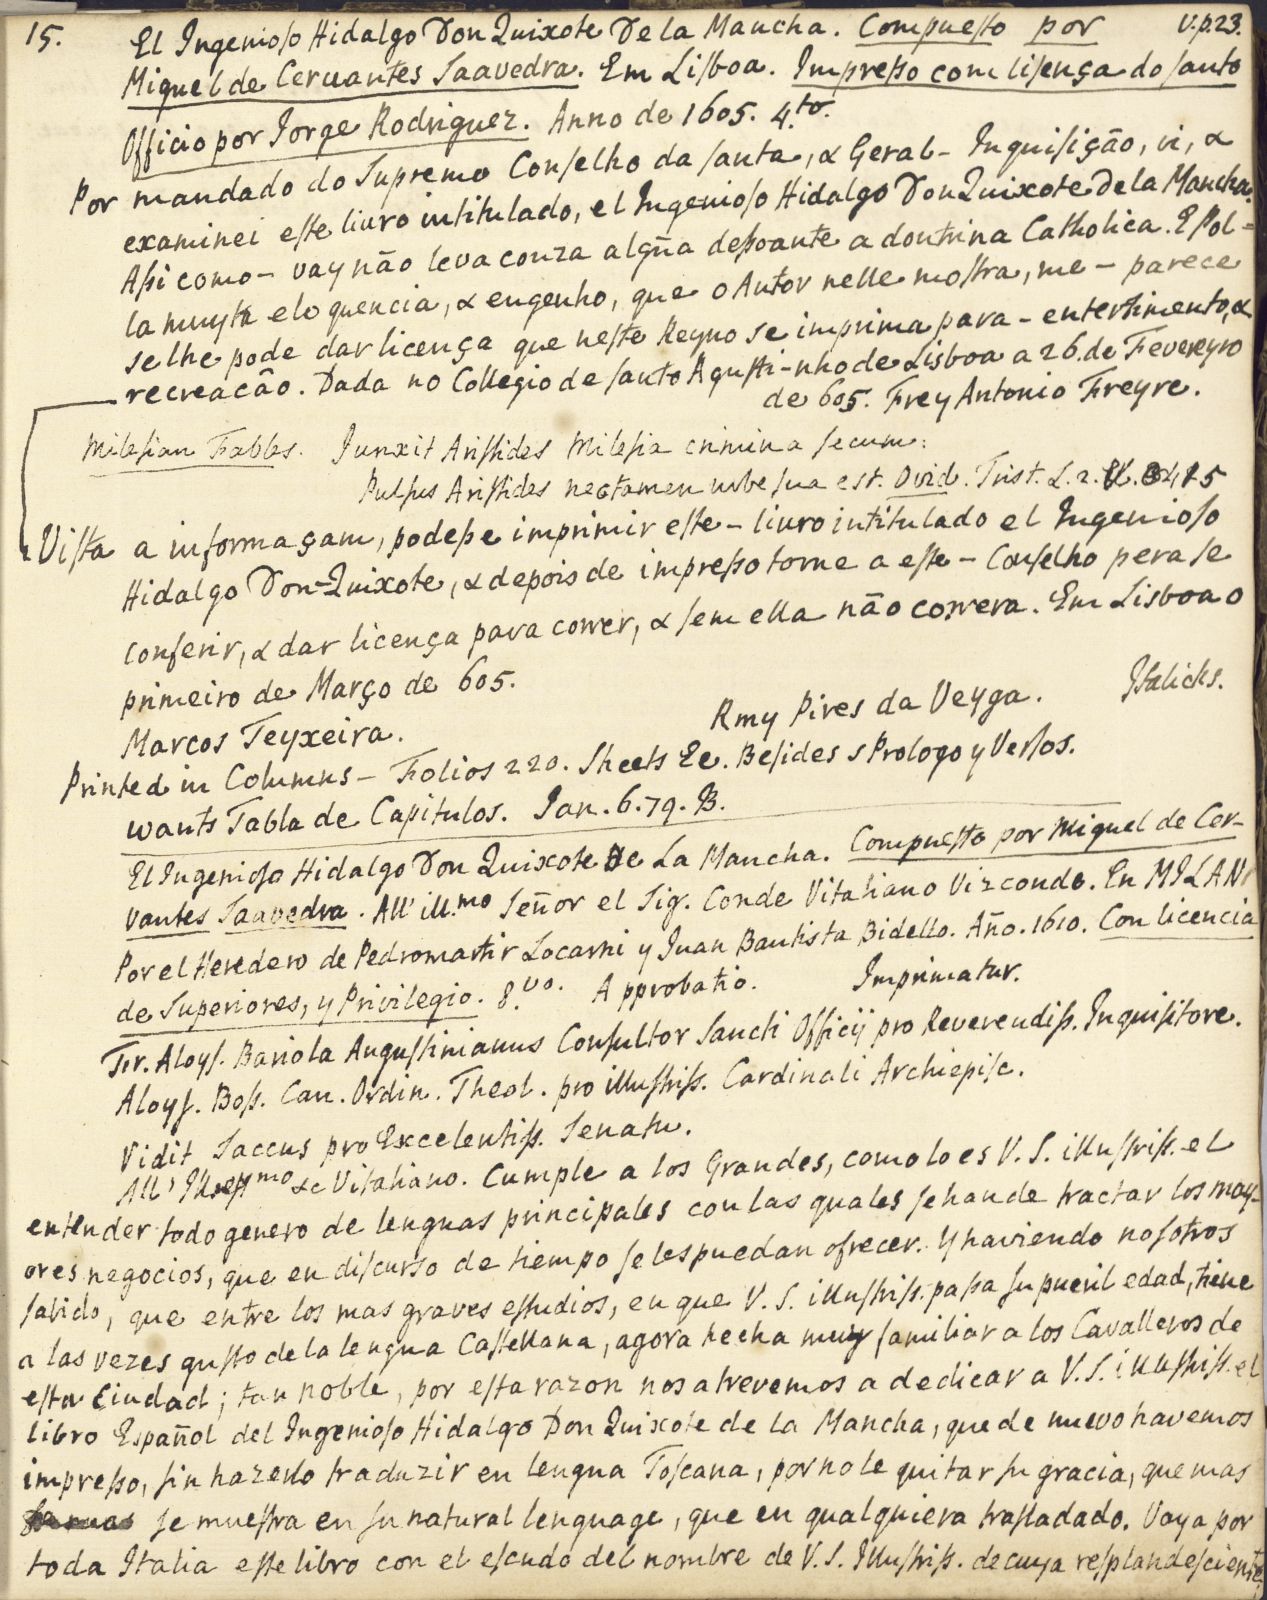 15. El Ingenioſo Hidalgo Don Quixote De la Mancha. Compueſto por v.p.23.
Miguel de Cervantes Saavedra. Em Liſboa. Impreſſo com liſença do ſanto
Officio por Jorge Rodriguez. Anno de 1605. 4.to.
Por mandado do Supremo Conſelho da ſanta, & Geral - Inquiſição, vi, &
examinei eſte livro intitulado, el Ingenioſo Hidalgo Don Quixote De la Mancha.
Aſsi como - vay não leva couza algũa deſsoante a doutrina Catholica. E Pol=
la muyta eloquencia, & engenho, que o Autor nelle moſtra, me - parece
se lhe pode dar licença que neſte Reyno se imprima para - entertimento, &
recreacão. Dada no Collegio de ſanto Aguſti-nho de Lisboa a 26. de Fevereyro
de 605. Frey Antonio Freyre.
Mileſian Fables. Junxit Ariſtides Mileſia crimina ſecum:
Pulſus Ariſtides nec tamen urbe ſua est. Ovid. Trist. L. 2.
Viſta a informaçam, podeſse imprimir eſte - livro intitulado el Ingenioſo
Hidalgo Don-Quixote, & depois de impreſso torne a eſte - Conſelho pera se
conferir, & dar licença para correr, & ſem ella não correra. Em Lisboa o
primeiro de Março de 605.
Marcos Teyxeira. Rmy Pires da Veyga. Italicks.
Printed in Columns - Folios 220. Sheets Ee. Beſides s Prologo y Verſos.
wants Tabla de Capitulos. Jan. 6. 79. B.
El Ingenioſo Hidalgo Don Quixote De La Mancha. Compueſto por Miguel de Cer-
vantes Saavedra. All' ill.mo Señor el Sig. Conde Vitaliano Vizconde. En MILAN
Por el Heredero de Pedromartir Locarni y Juan Bautista Bidello. Año. 1610. Con licencia
de Superiores, y Privilegio. 8.vo. Approbatio. Imprimatur.
Fr. Aloyſ. Bariola Auguſtinianus Conſultor Sancti Officij pro Reverendiſs. Inquiſitore.
Aloyſ. Boſs. Can. Ordin. Theol. pro illuſtriſs. Cardinali Archiepiſc.
Vidit Saccus pro Excelentiſs. Senatu.
All' &c Vitaliano. Cumple a los Grandes, como lo es V. S. illuſtriſs. el
entender todo genero de lenguas principales con las quales ſe han de tractar los may-
ores negocios, que en diſcurso de tiempo ſe les puedan ofrecer. Y haviendo noſotros
ſabido, que entre los mas graves eſtudios, en que V. S. illuſtriſs. paſsa ſu pueril edad, tiene
a las vezes guſto de la lengua Caſtellana, agora hecha muy familiar a los Cavalleros de
eſta Ciudad; tan noble, por eſta razon nos atrevemos a dedicar a V. S. illuſtriſs. el
libro Español del Ingenioſo Hidalgo Don Quixote de la Mancha, que de nuevo havemos
impreſso, ſin hazerlo traduzir en lengua Toſcana, por no le quitar ſu gracia, que mas
ſe mueſtra en ſu natural lenguage, que en qualquiera traſladado. Vaya por
toda Italia eſte libro con el eſcudo del nombre de V. S. Illuſtriſs. de cuya reſplandeſciente